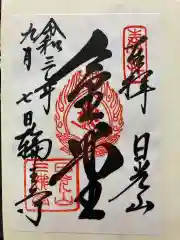 奉拝
日光山
金堂
令和二年
九月七日
輪王寺